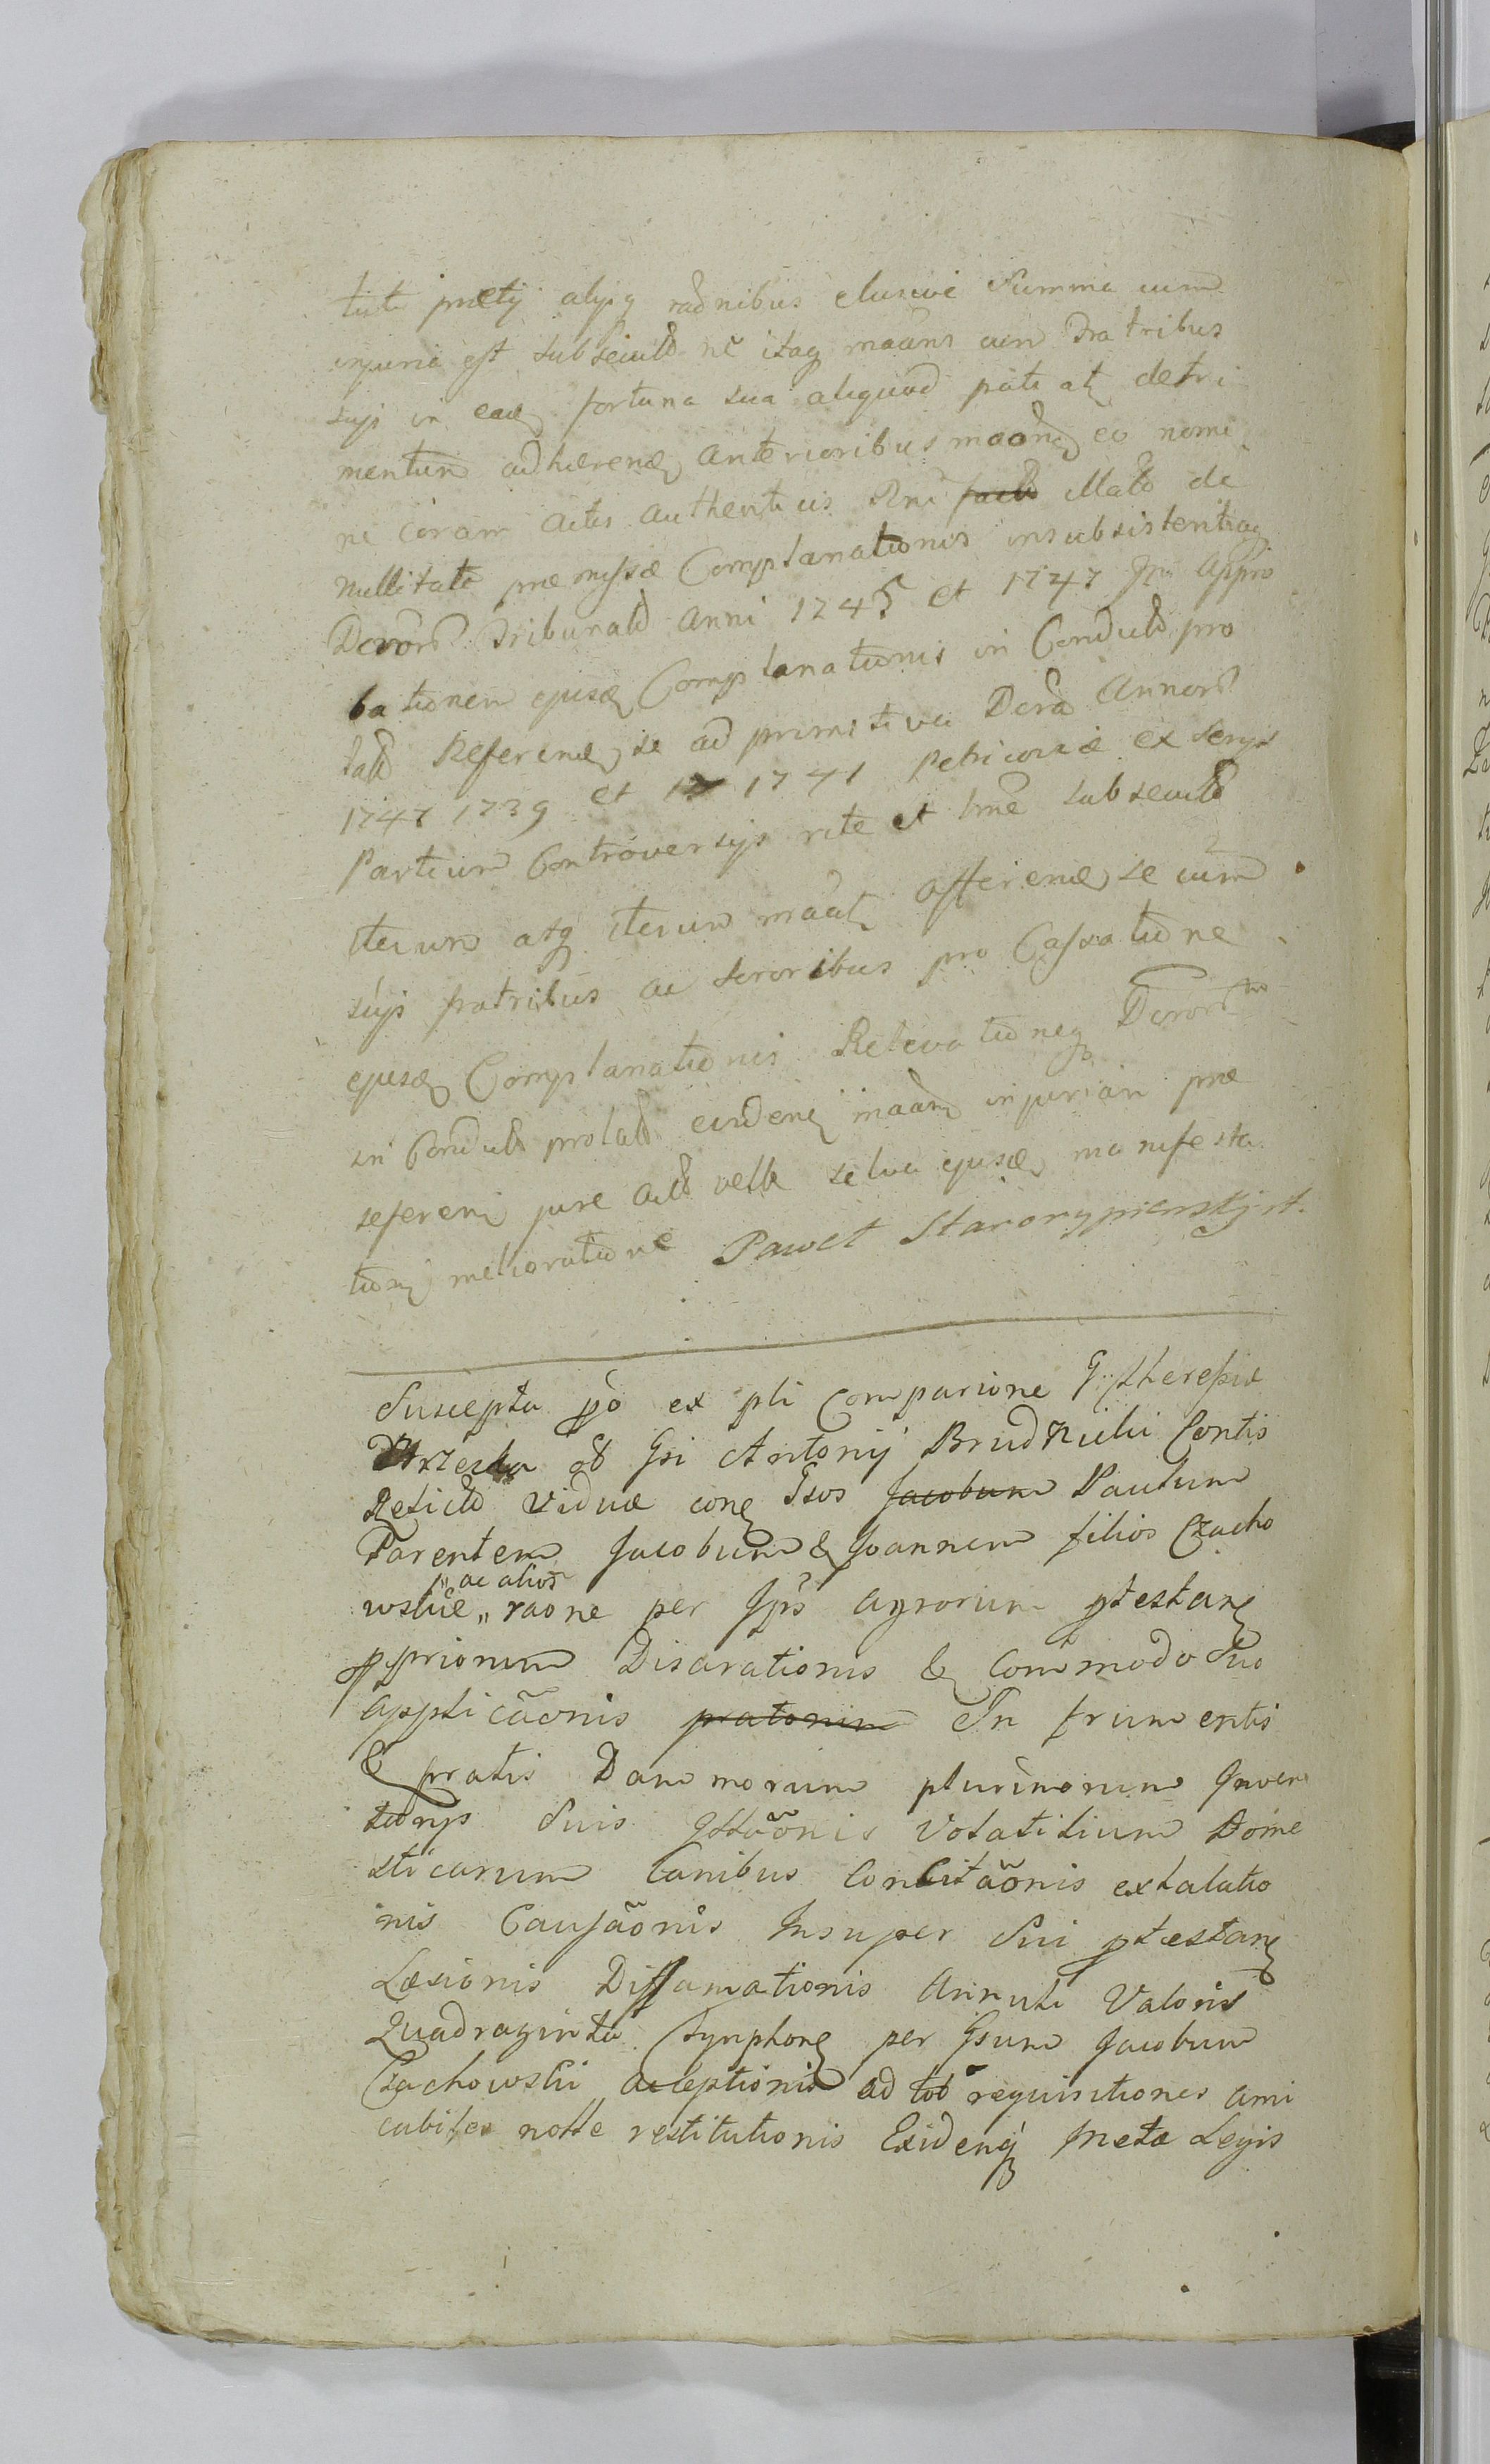 titi prætij alijsq raõnibus elusive Summa cum
injuria est subsecuta ne itaq maãns cum Fratribus
suis in eadẽ fortuna sua aliquod patiatr detri
mentum adhærenđ anterioribus maõnibꝫ eo nomi
ne coram actis authenticis Rni facto illato de
nullitate præmissæ Complanationis insubsistentiaq
Decror Tribunalđ anni 1745 et 1747 In appro
bationem ejusđ Complanationis in Conduđ pro
latđ Referenđ se ad primitiva Dcrã Annorũ
1747 1739 et 1741 Petricoviæ ex serijs
Partium Controversijs rite et lmẽ subsecuta
iterum atq iterum maãt offerenđ se cum
suis fratribus ac sororibus pro Cassatione
ejusđ Complanationis Relevationeq Dcrorum
in Conduđ prolat evidenʒ maãnđ injuriam præ
seferenʒ jure actđ velle salva ejusđ manifesta
tionʒ melioratione Paweł Starorypienskj st.
Suscepta põ ex pli Comparione Gthereßiæ
olt Gsi Antonij Brudnicki Contis
Relictæ Viduæ conʒ Gsos Jacobum Paulum
Parentem Jacobum & Joannem filios Czacho
wskie „ raõne per Ipõs agrorum ptestanʒ
„ ac alios
ppriorum Disarationis & Commodo Suo
applicãonis pratorum In frumentis
& pratis Damnorum plurimorum Inven
tionis Suis Volatilium Dome
sticarum Canibus Concitãonis
nis Causãonis Insuper Sui ptestanʒ
Læsionis Diffamationis Annuli Valoris
Quadraginta Tynphonʒ per Gsum Jacobum
Czachowski acceptionis ad tot requisitiones ami
cabiles nolle restitutionis Evidenq Meta Legis